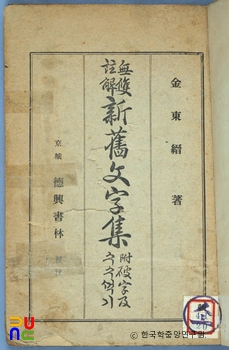 金東縉 著
無雙
註解
新舊文字集
附破字及
수수엮기
京城 德興書林
© 한국학중앙연구원